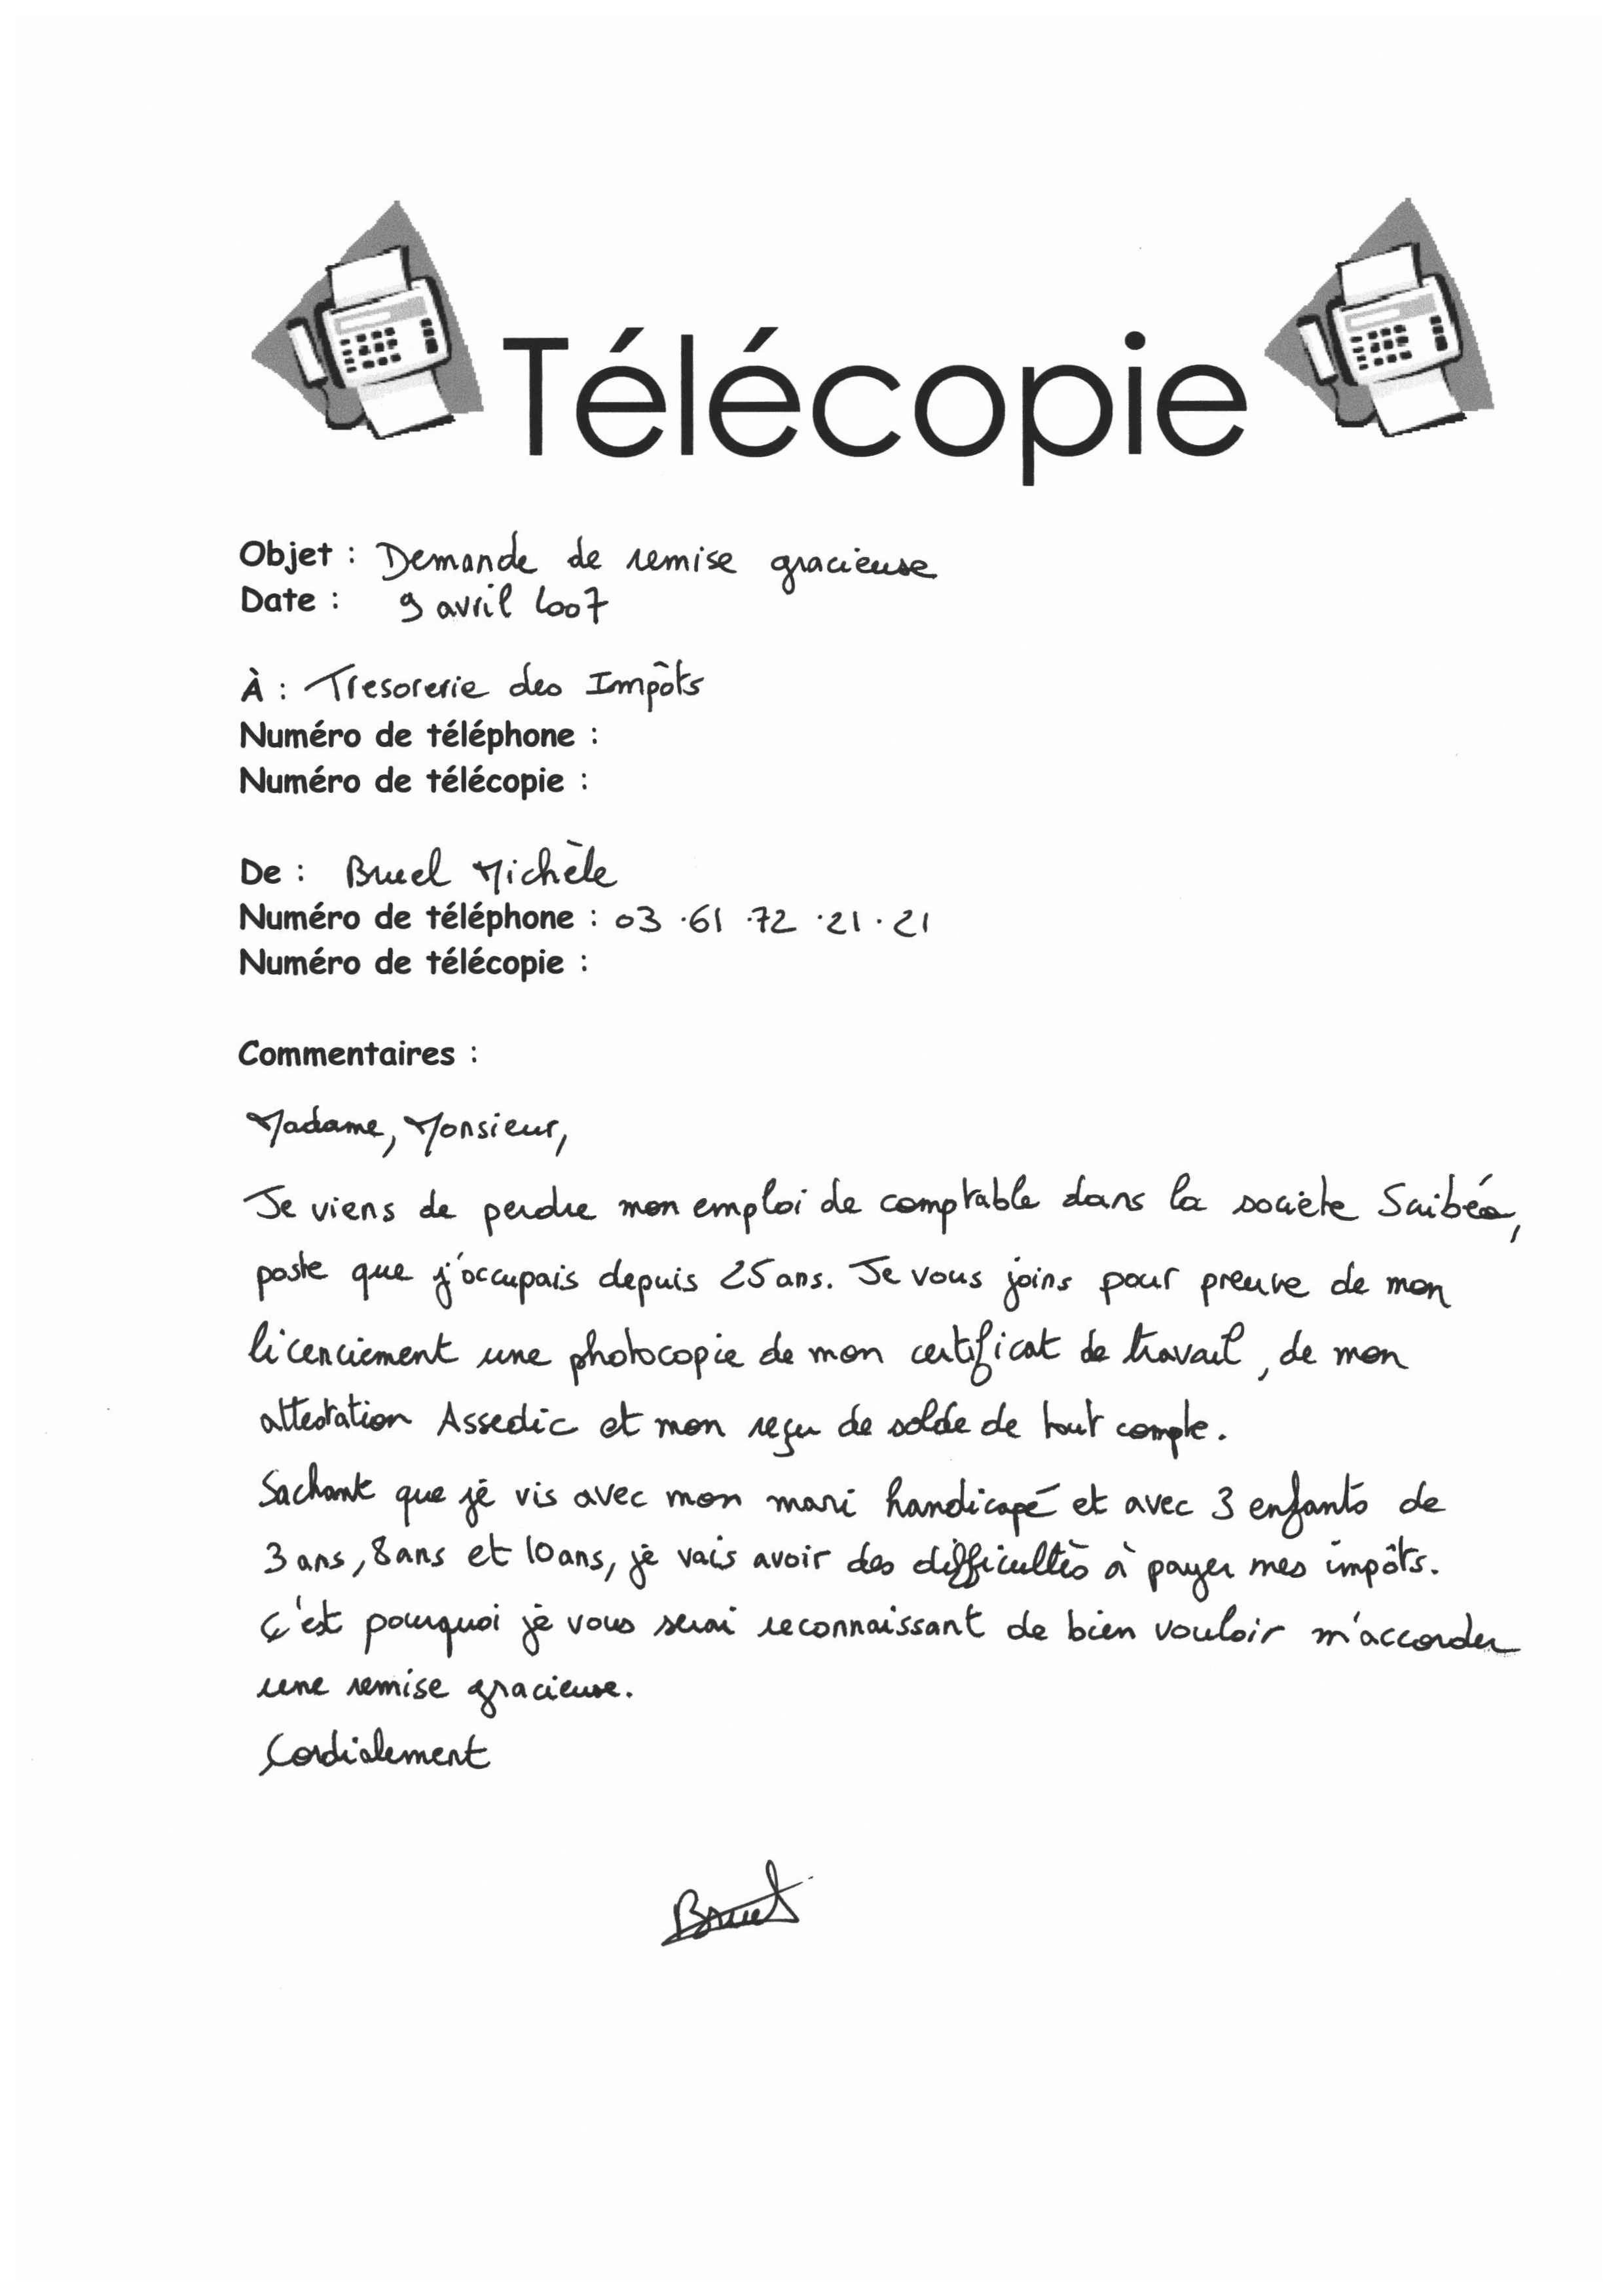 Télécopie
Objet : Demande de remise gracieuse
Date : 9 avril 2007
À : Tresorerie des Impôts
Numéro de téléphone :
Numéro de télécopie :
De : Bruel Michèle
Numéro de téléphone : 03.61.72.21.21
Numéro de télécopie :
Commentaires :
Madame, Monsieur,
Je viens de perdre mon emploi de comptable dans la sociète Saibéa,
poste que j'occupais depuis 25 ans. Je vous joins pour preuve de mon
licenciement une photocopie de mon certificat de travail, de mon
attestation Assedic et mon reçu de solde de tout compte.
Sachant que je vis avec mon mari handicapé et avec 3 enfants de
3 ans, 8 ans et 10 ans, je vais avoir des difficultés à payer mes impôts.
C'est pourquoi je vous serai reconnaissant de bien vouloir m'accorder
une remise gracieuse.
Cordialement
Bruel